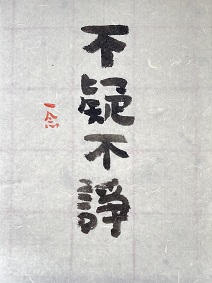 不疑不諍
一念